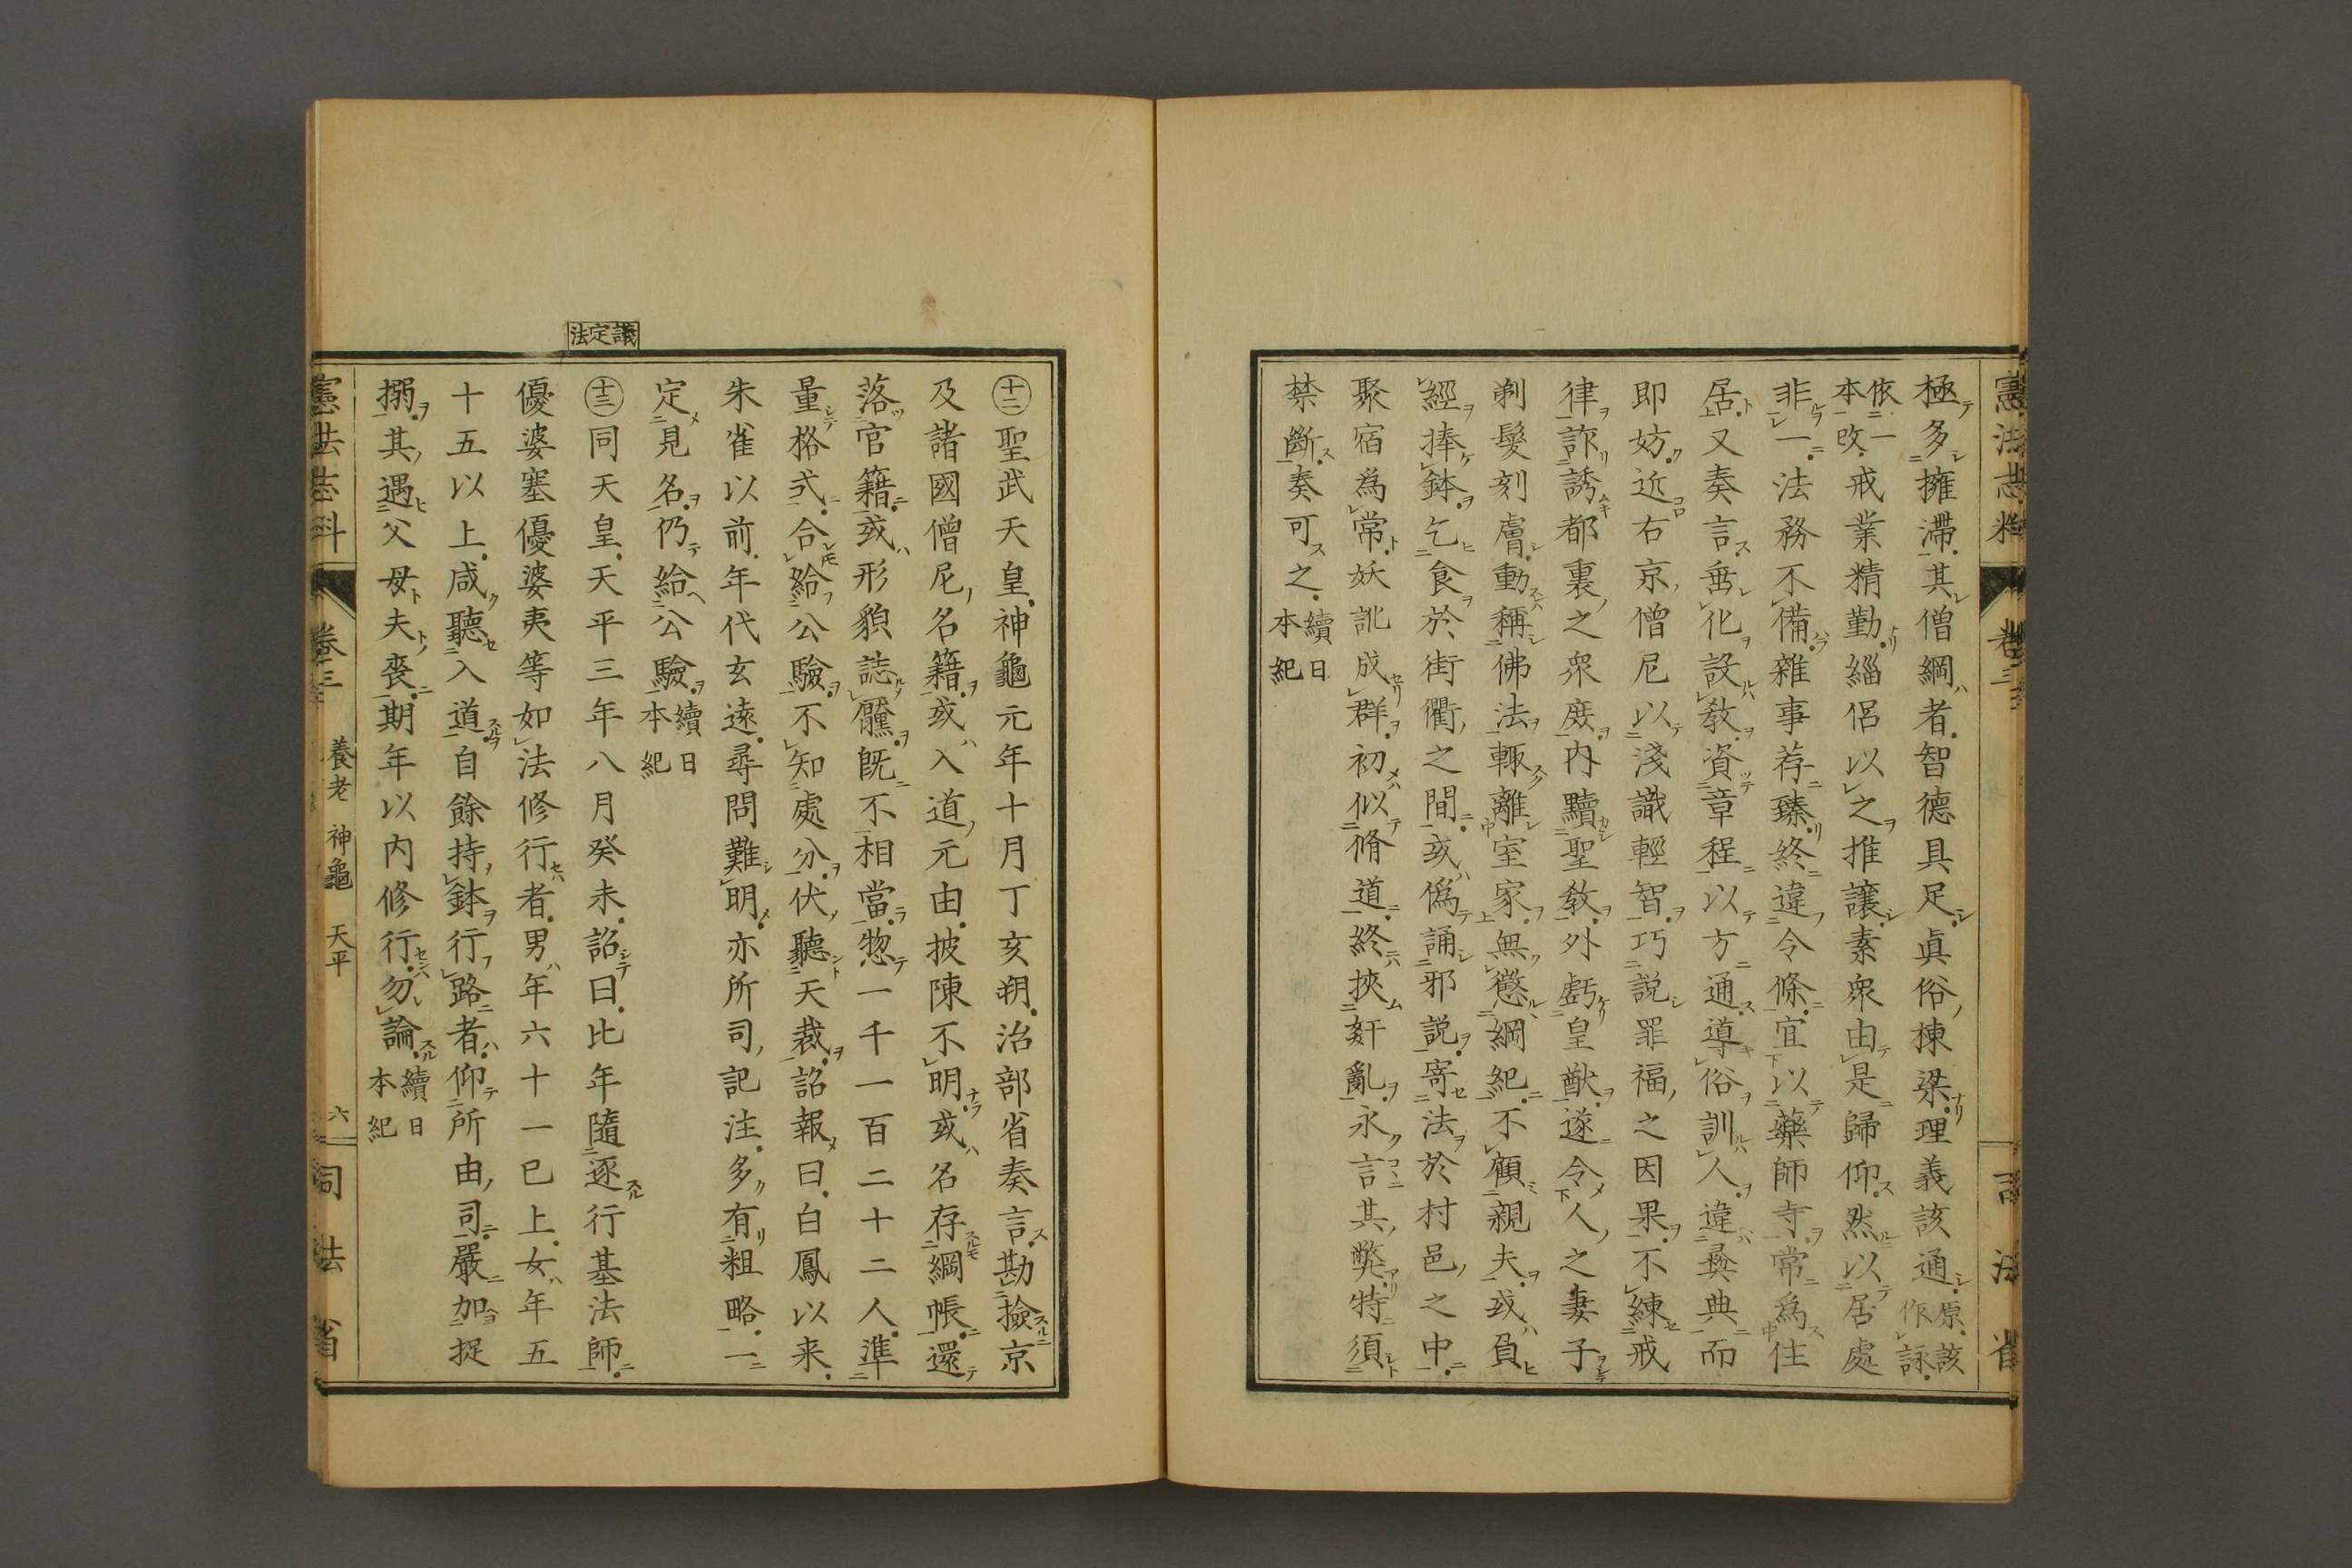 憲法志料 卷三 司法省
極多擁滯其僧綱者智德具足眞俗棟梁理義該通原該作詠
依一本改戒業精勤緇侶以之推讓素衆由是歸仰然以居處
非一法務不備雜事荐臻終違令條宜以藥師寺常爲住
居又奏言垂化設敎資章程以方通導俗訓人違彝典而
即妨近右京僧尼以淺識輕智巧説罪福之因果不練戒
律詐誘都裏之衆庶内黷聖敎外虧皇猷遂令人之妻子
剃髮刻膚動稱佛法輙離室家無懲綱紀不顧親夫或負
經捧鉢乞食於街衢之間或僞誦邪説寄法於村邑之中
聚宿爲常妖訛成群初似脩道終挾奸亂永言其弊特須
禁斷奏可之續日本紀
議定法
十二聖武天皇神龜元年十月丁亥朔治部省奏言勘撿京
及諸國僧尼名籍或入道元由披陳不明或名存綱帳還
落官籍或形貌誌黶既不相當惣一千一百二十二人準
量格式合給公驗不知處分伏聽天裁詔報曰白鳳以来
朱雀以前年代玄遠尋問難明亦所司記注多有粗略一
定見名仍給公驗續日本紀
十三同天皇天平三年八月癸未詔曰比年隨逐行基法師
優婆塞優婆夷等如法修行者男年六十一已上女年五
十五以上咸聽入道自餘持鉢行路者仰所由司嚴加捉
搦其遇父母夫喪期年以内修行勿論續日本紀
憲法志料 卷三 養老 神龜 天平 六 司法省